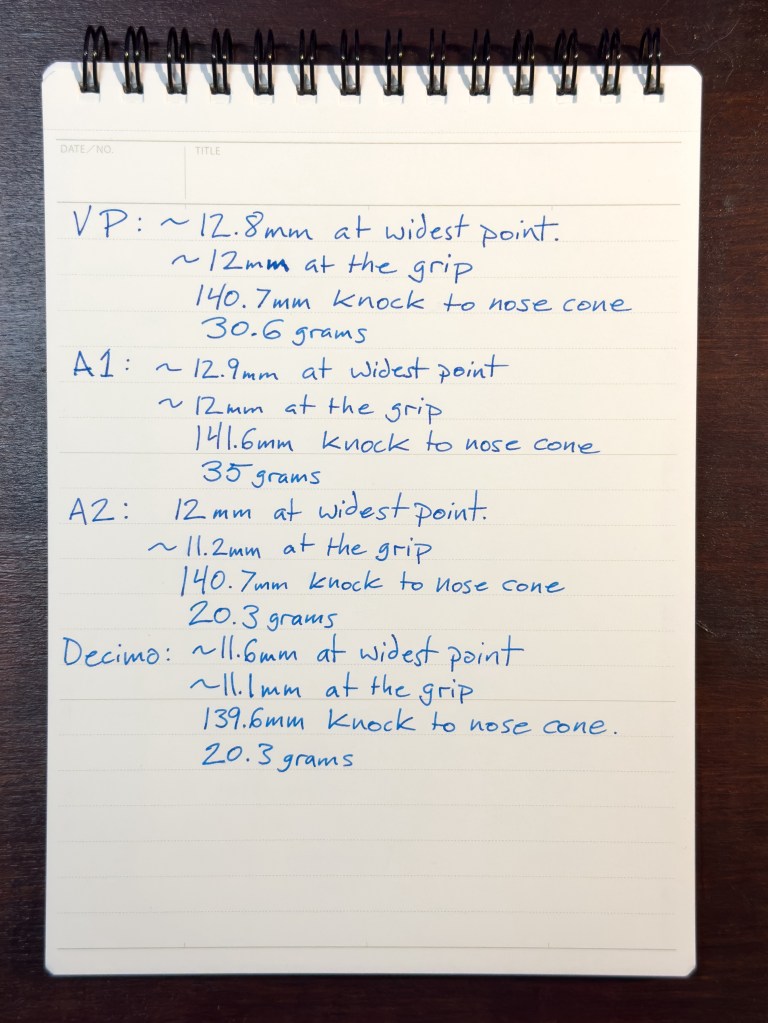 DATE/NO. TITLE
VP: ~12.8mm at widest point.
~12mm at the grip
140.7mm knock to nose cone
30.6 grams
A1: ~12.9mm at widest point
~12mm at the grip
141.6mm knock to nose cone
35 grams
A2: 12mm at widest point.
~11.2mm at the grip
140.7mm knock to nose cone
20.3 grams
Decimo: ~11.6mm at widest point
~11.1mm at the grip
139.6mm knock to nose cone.
20.3 grams